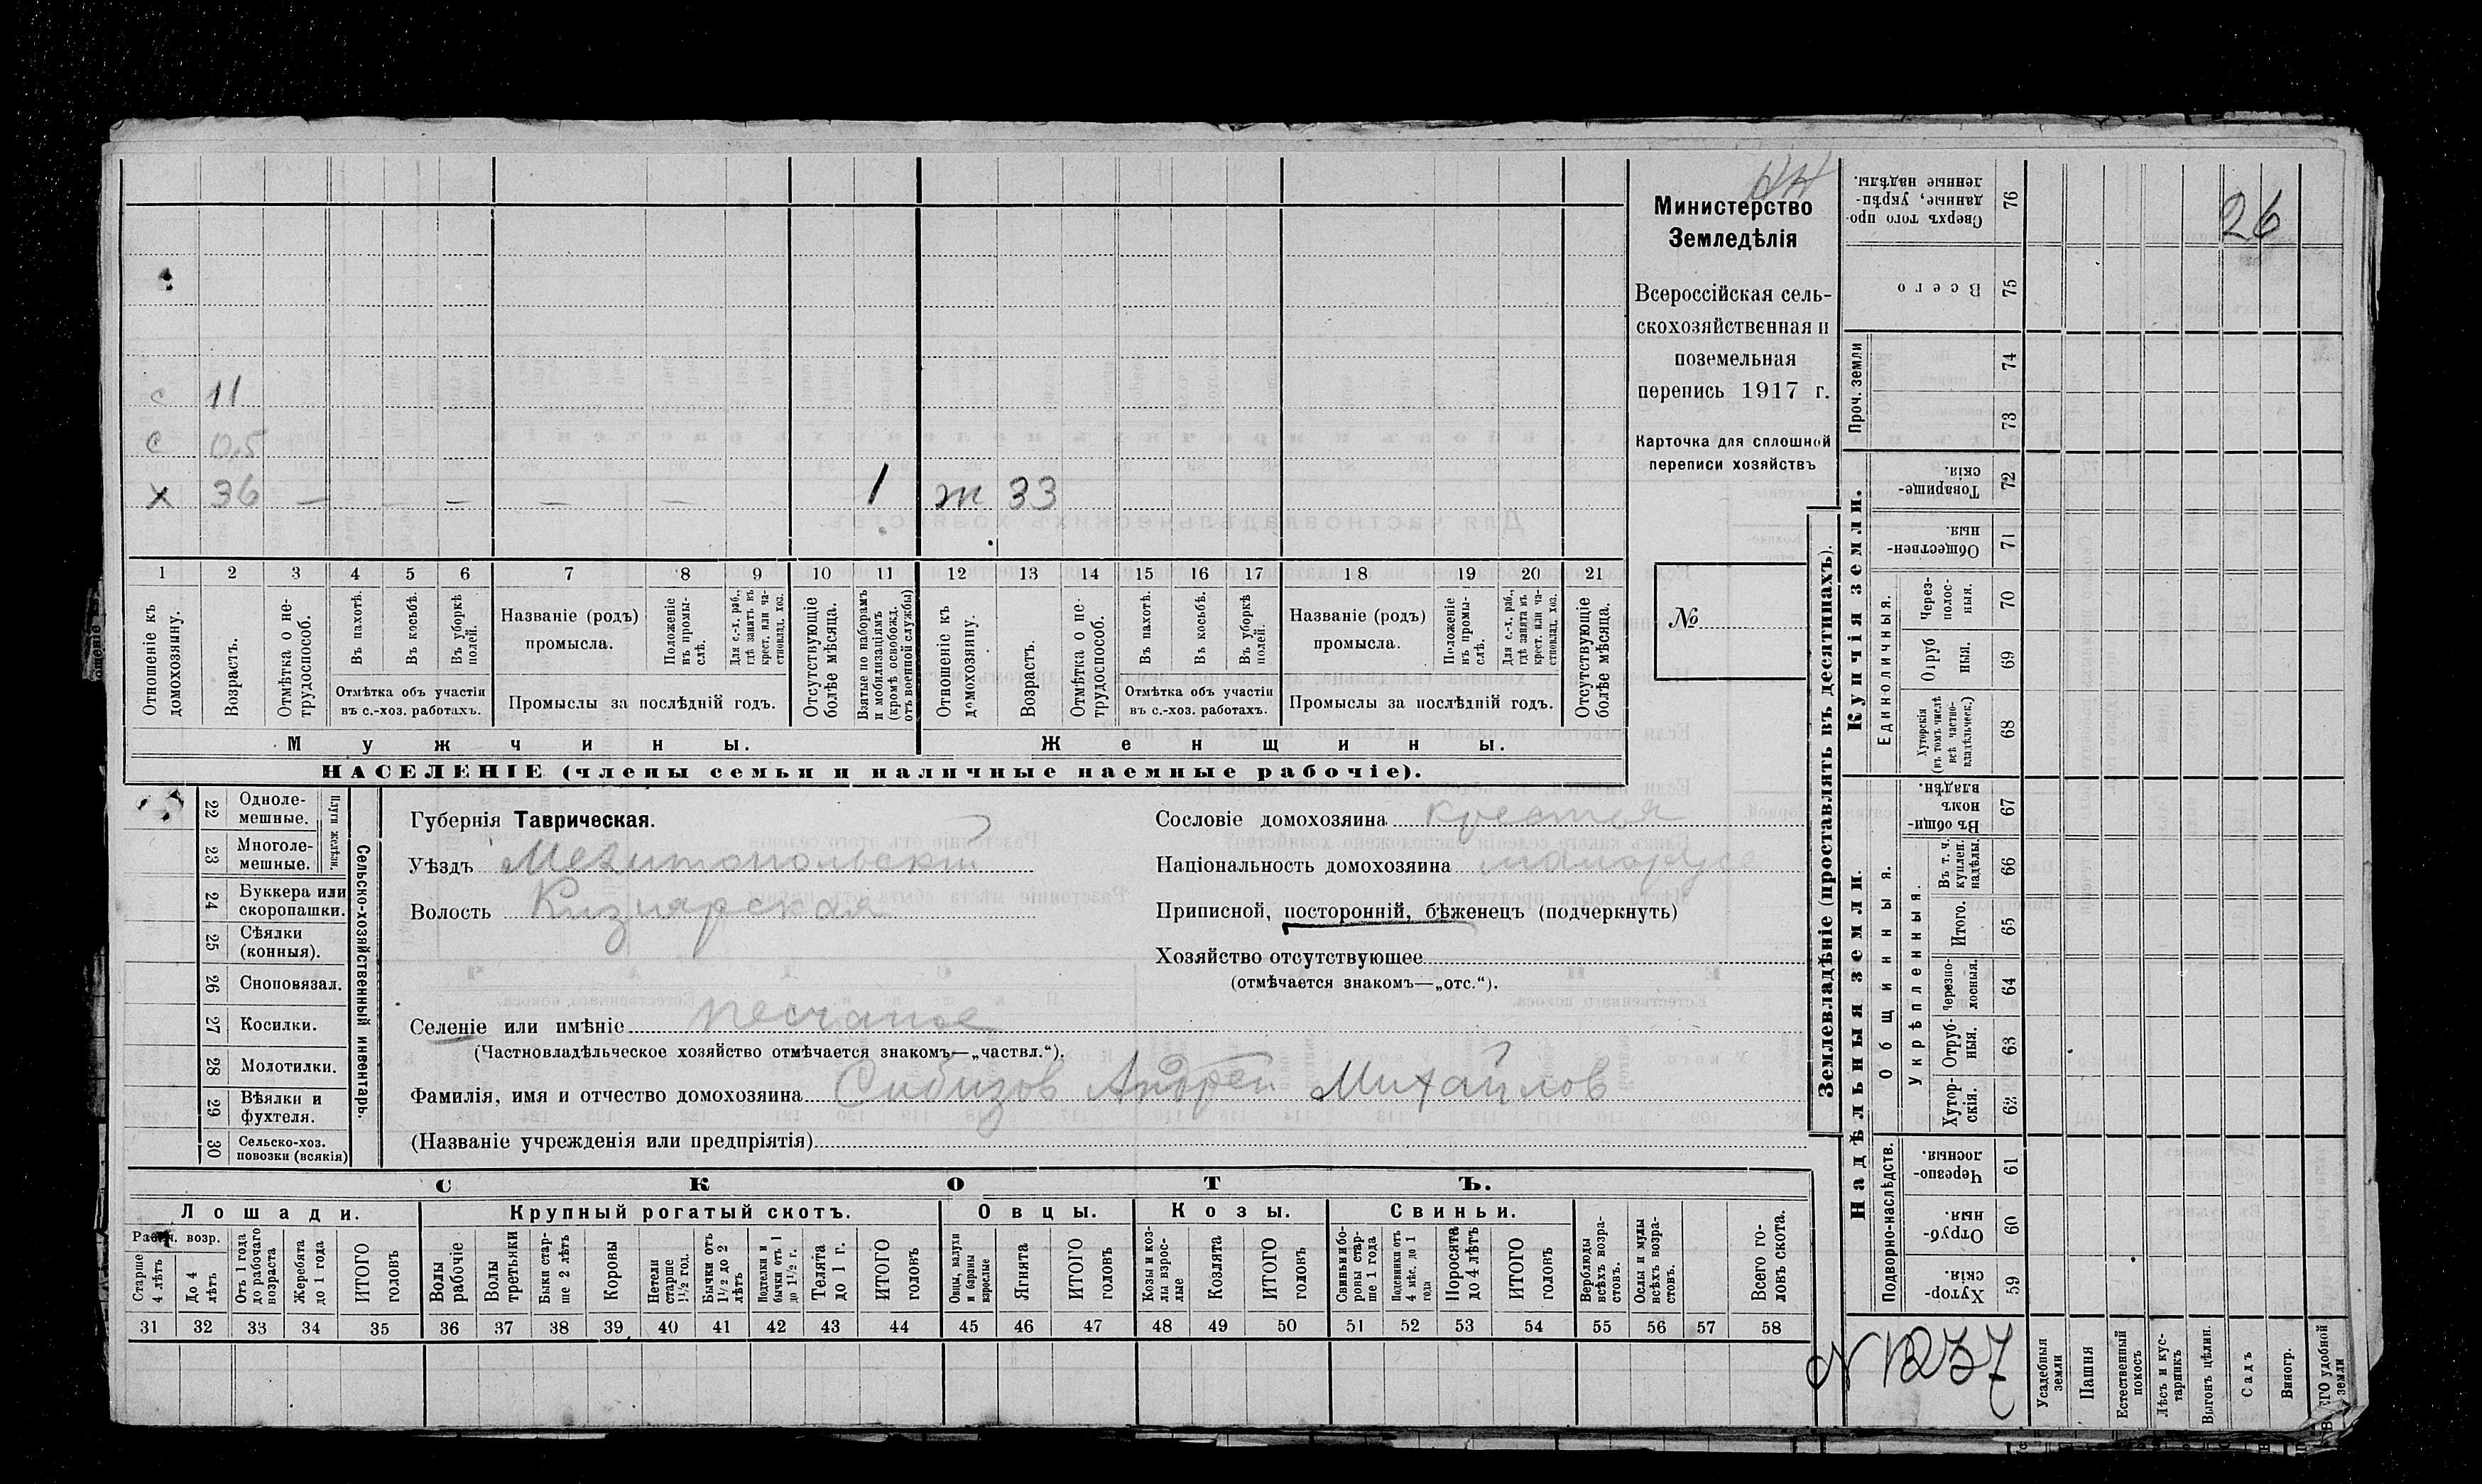 с 11
с 0,5
х 36 — — — — — — 1 ж 33
1 2 3 4 5 6 7 8 9 10 11 12 13 14 15 16 17 18 19 20 21
Отношеніе къ домохозяину.
Возрастъ.
Отмѣтка о не-
трудоспособ.
Въ пахотѣ.
Въ косьбѣ.
Въ уборкѣ
полей.
Отмѣтка объ участіи
въ с.-хоз. работахъ.
Названіе (родъ)
промысла.
Положеніе
въ промы-
слѣ.
Для с.-х. раб.,
гдѣ занятъ въ
крест. или ча-
стновлад. хоз.
Промыслы за послѣдній годъ.
Отсутствующіе
болѣе мѣсяца.
Взятые по наборамъ
и мобилизаціямъ
(кромѣ освобожд.
отъ военной службы)
Отношеніе къ
домохозяину.
Возрастъ.
Отмѣтка о не-
трудоспособ.
Въ пахотѣ.
Въ косьбѣ.
Въ уборкѣ
полей.
Отмѣтка объ участіи
въ с.-хоз. работахъ.
Названіе (родъ)
промысла.
Положеніе
въ промы-
слѣ.
Для с.-х. раб.,
гдѣ занята въ
крест. или ча-
стновлад. хоз.
Промыслы за послѣдній годъ.
Отсутствующіе
болѣе мѣсяца.
Мужчины.
Женщины.
НАСЕЛЕНІЕ (члены семьи и наличные наемные рабочіе).
Министерство
Земледѣлія
Всероссійская сель-
скохозяйственная и
поземельная
перепись 1917 г.
Карточка для сплошной
переписи хозяйствъ
№
22 Одноле-
мешные.
23 Многоле-
мешные.
Плуги желѣзн.
24 Буккера или
скоропашки.
25 Сѣялки
(конныя).
26 Сноповязал.
27 Косилки.
28 Молотилки.
29 Вѣялки и
фухтеля.
30 Сельско-хоз.
повозки (всякія)
Сельско-хозяйственный инвентарь.
Губернія Таврическая.
Уѣздъ Мелитопольскій
Волость Кизиярская
Сословіе домохозяина крестья
Національность домохозяина малорусс
Приписной, посторонній, бѣженецъ (подчеркнуть)
Хозяйство отсутствующее
(отмѣчается знакомъ—„отс.“).
Селеніе или имѣніе Песчаное
(Частновладѣльческое хозяйство отмѣчается знакомъ—„частвл.“).
Фамилія, имя и отчество домохозяина Сибизов Андрей Михайлов
(Названіе учрежденія или предпріятія)
СКОТЪ.
Лошади. Крупный рогатый скотъ. Овцы. Козы. Свиньи.
Рабоч. возр.
Старше
4 лѣтъ
До 4
лѣтъ
Отъ 1 года
до рабочаго
возраста
Жеребята
до 1 года
ИТОГО
головъ
Волы
рабочіе
Волы
третьяки
Быки стар-
ше 2 лѣтъ
Коровы
Нетели
старше
1½ год.
Бычки отъ
1½ до 2
лѣтъ
Подтелки и
бычки отъ 1
до 1½ г.
Телята
до 1 г.
ИТОГО
головъ
Овцы, валухи
и бараны
взрослые
Ягнята
ИТОГО
головъ
Козы и коз-
лы взрос-
лые
Козлята
ИТОГО
головъ
Свиньи и бо-
ровы стар-
ше 1 года
Подсвинки отъ
4 мѣс. до 1
года
Поросята
до 4 лѣтъ
ИТОГО
головъ
Верблюды
всѣхъ возра-
стовъ.
Ослы и мулы
всѣхъ возра-
стовъ.
Всего го-
ловъ скота.
31 32 33 34 35 36 37 38 39 40 41 42 43 44 45 46 47 48 49 50 51 52 53 54 55 56 57 58
Землевладѣніе (проставлять въ десятинахъ).
Надѣльныя земли.
Купчія земли.
Проч. земли
Подворно-наслѣдств.
Общинныя.
Укрѣпленныя.
Единоличныя.
Сверхъ того про-
данные, укрѣп-
ленные надѣлы.
76
Всего
75
74
73
Товарище-
скія.
72
Обществен-
ныя.
71
Через-
полос-
ныя.
70
Отруб
ныя.
69
Хуторскія
(въ томъ числѣ
всѣ частно-
владѣльческ.)
68
Въ общин-
номъ
владѣн.
67
Въ т. ч.
куплен.
надѣлы.
66
Итого.
65
Черезпо-
лосныя.
64
Отруб-
ныя.
63
Хутор-
скія.
62
Черезпо-
лосныя.
61
Отруб-
ныя.
60
Хутор-
скія.
59
26
N 1237
Усадебныя
земли
Пашня
Естественный
покосъ
Лѣсъ и кус-
тарникъ
Выгонъ цѣлин.
Садъ
Виногр.